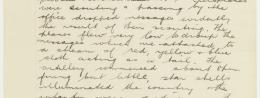 were scouting & passing by the
office dropped messages evidently
the result of their scouting the
planes flew very low & dropped the
messages which are attached to
a stream of red, yellow & blue
cloth acting as a tail. the
artillery commenced about then
firing but little, star shells
illuminated the country & the